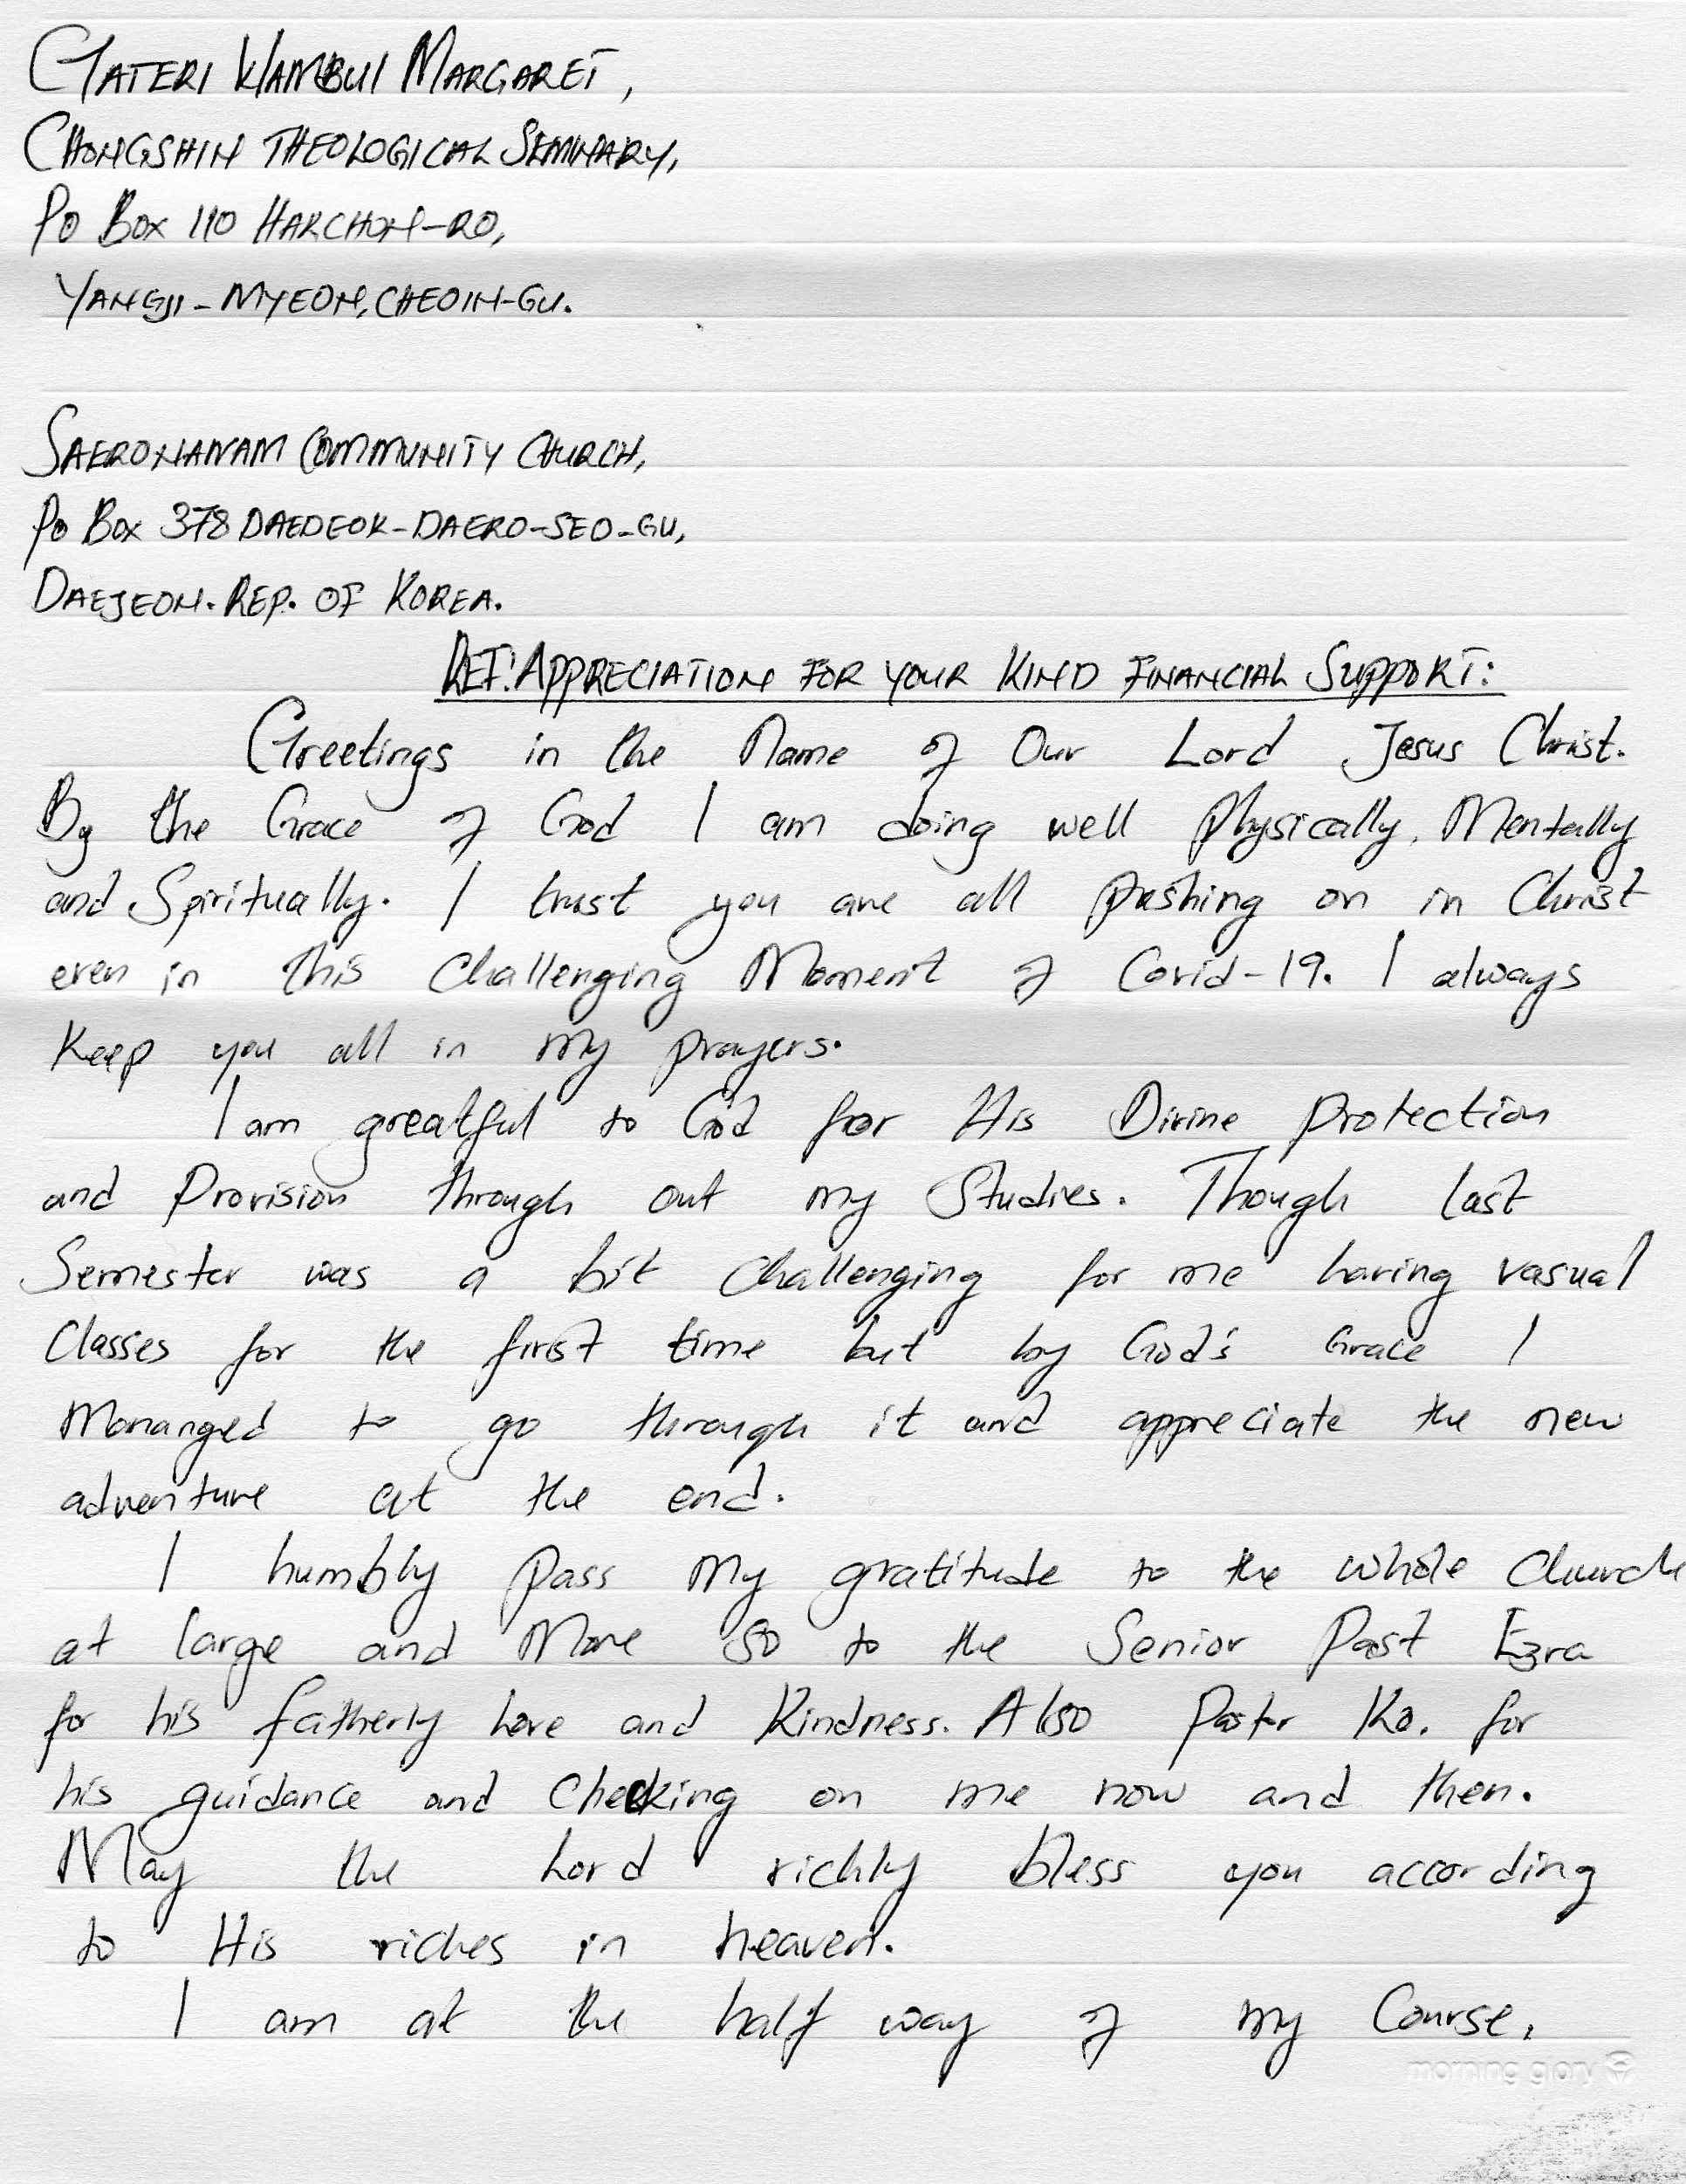 GATERI WAMBUI MARGARET,
CHONGSHIN THEOLOGICAL SEMINARY,
PO BOX 110 HAKCHON-RO,
YANGJI-MYEON, CHEOIN-GU.
SAERONANAM COMMUNITY CHURCH,
PO BOX 378 DAEDEOK-DAERO-SEO-GU,
DAEJEON. REP. OF KOREA.
REF: APPRECIATION FOR YOUR KIND FINANCIAL SUPPORT:
Greetings in the Name of Our Lord Jesus Christ.
By the Grace of God I am doing well Physically, Mentally
and Spiritually. I trust you are all pushing on in Christ
even in this Challenging Moment of Covid-19. I always
Keep you all in my prayers.
I am greatful to God for His Divine protection
and Provision through out my Studies. Though last
Semester was a bit Challenging for me having vasual
Classes for the first time but by God's Grace I
Mananged to go through it and appreciate the new
adventure at the end.
I humbly pass my gratitude to the whole Church
at large and More so to the Senior Past Ezra
for his fatherly love and Kindness. Also Pastor Ko. for
his guidance and Checking on me now and then.
May the Lord richly bless you according
to His riches in heaven.
I am at the half way of my Course,
morning glory